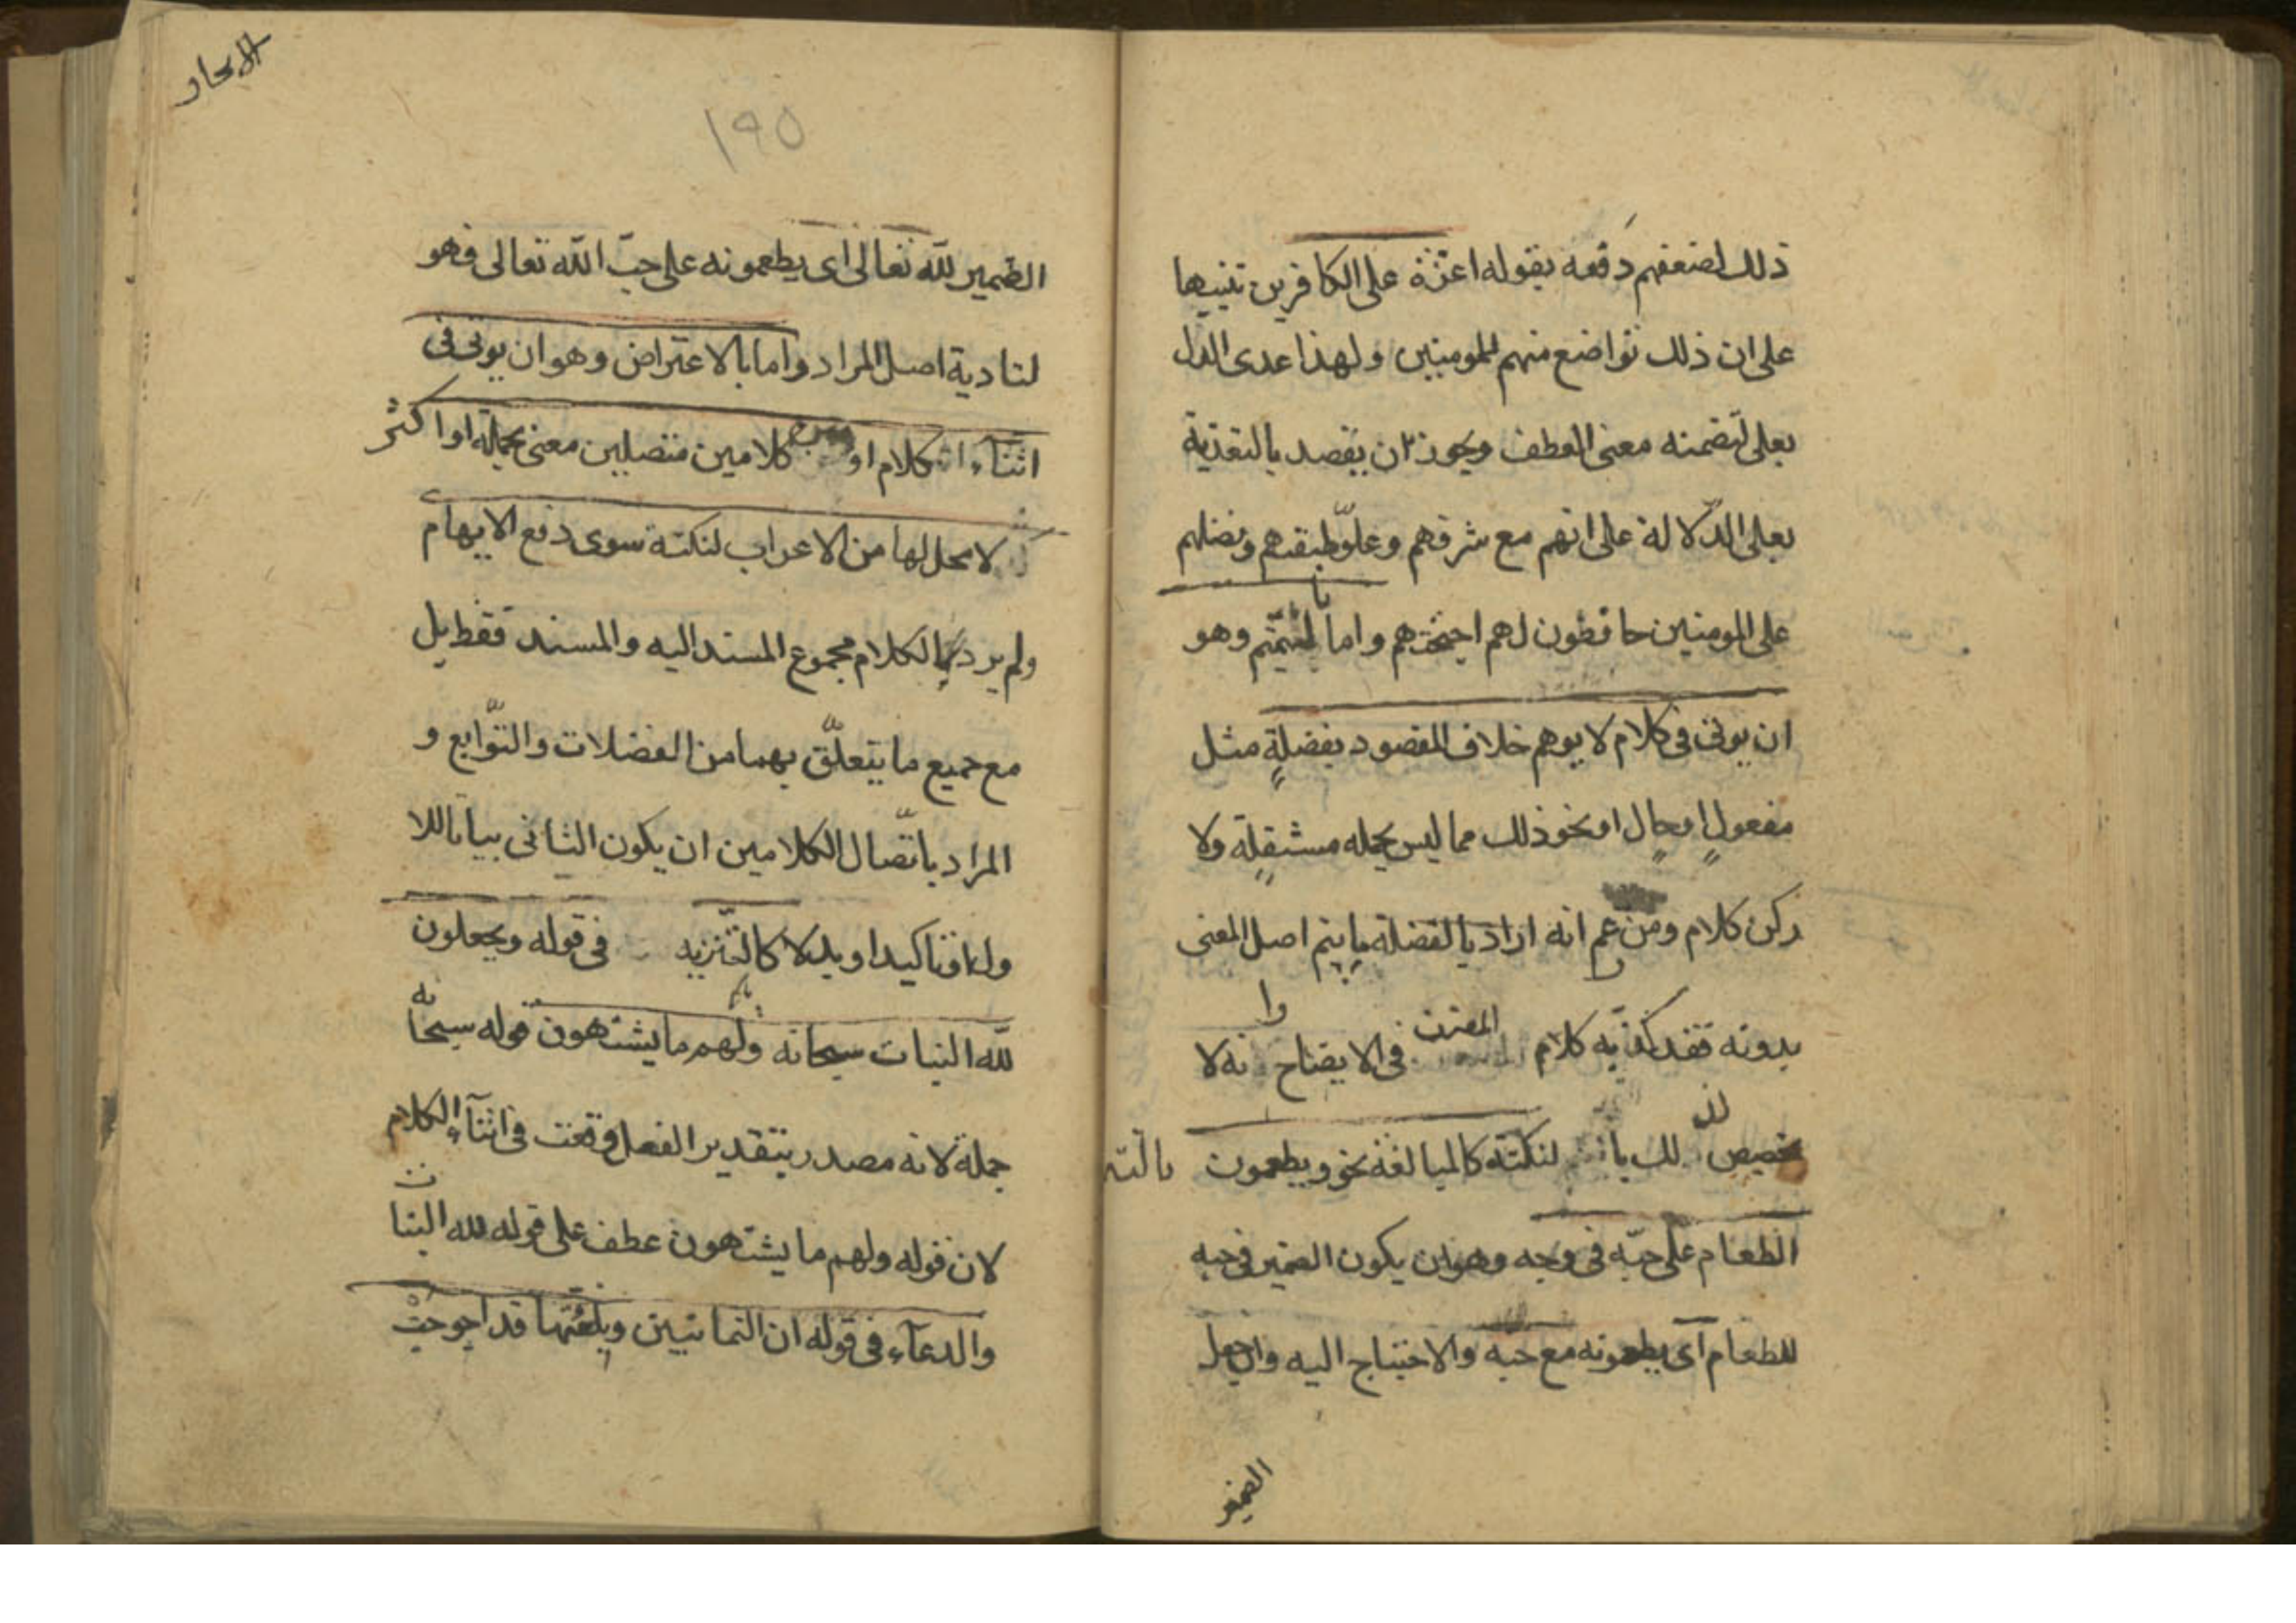 ذلك لضعفهم دفعه بقوله اعزة على الكافرين تنبيها
على ان ذلك تواضع منهم للمومنين ولهذا عدى الذل
بعلى لتضمنه معنى العطف ويجوز ان يقصد بالتعدية
بعلى الدّلالة على انهم مع شرفهم وعلوّ طبقتهم وفضلهم
على المومنين خافضون لهم اجنحتهم واما بالتتميم وهو
ان يوتى فى كلام لا يوهم خلاف المقصود بفضلةٍ مثل
مفعولٍ او حالٍ او نحو ذلك مما ليس بجمله مستقلةٍ ولا
ركن كلام ومن زعم انه اراد بالفضلة ما يتم اصل المعنى
بدونه فقد كذّبه كلام المصنف فى الايضاح وانه لا
تخصيص لذلك بالتتميم لنكتة كالمبالغة نحو ويطعمون
الطعام على حبّه فى وجه وهو ان يكون الضمير فى حبه
للطعام اى يطعمونه مع حبه والاحتياج اليه وان جعل
الضمير
١٩٥
الضمير للّه تعالى اى يطعمونه على حبّ اللّه تعالى فهو
لتادية اصل المراد واما بالاعتراض وهو ان يوتى فى
اثناء الكلام او بين كلامين متصلين معنى بجملة او اكثر
لا محل لها من الاعراب لنكتة سوى دفع الايهام
ولم يرد بالكلام مجموع المسند اليه والمسند فقط بل
مع جميع ما يتعلّق بهما من الفضلات والتّوابع و
المراد باتّصال الكلامين ان يكون الثانى بيانا للا
ول او تاكيدا او بدلا كالتّنزيه فى قوله ويجعلون
للّه البنات سبحانه ولهم ما يشتهون قوله سبحانه
جملة لانه مصدر بتقدير الفعل وقعت فى اثناء الكلام
لان قوله ولهم ما يشتهون عطف على قوله لله البنات
والدعاء فى قوله ان الثمانين وبلغتها قد احوجت